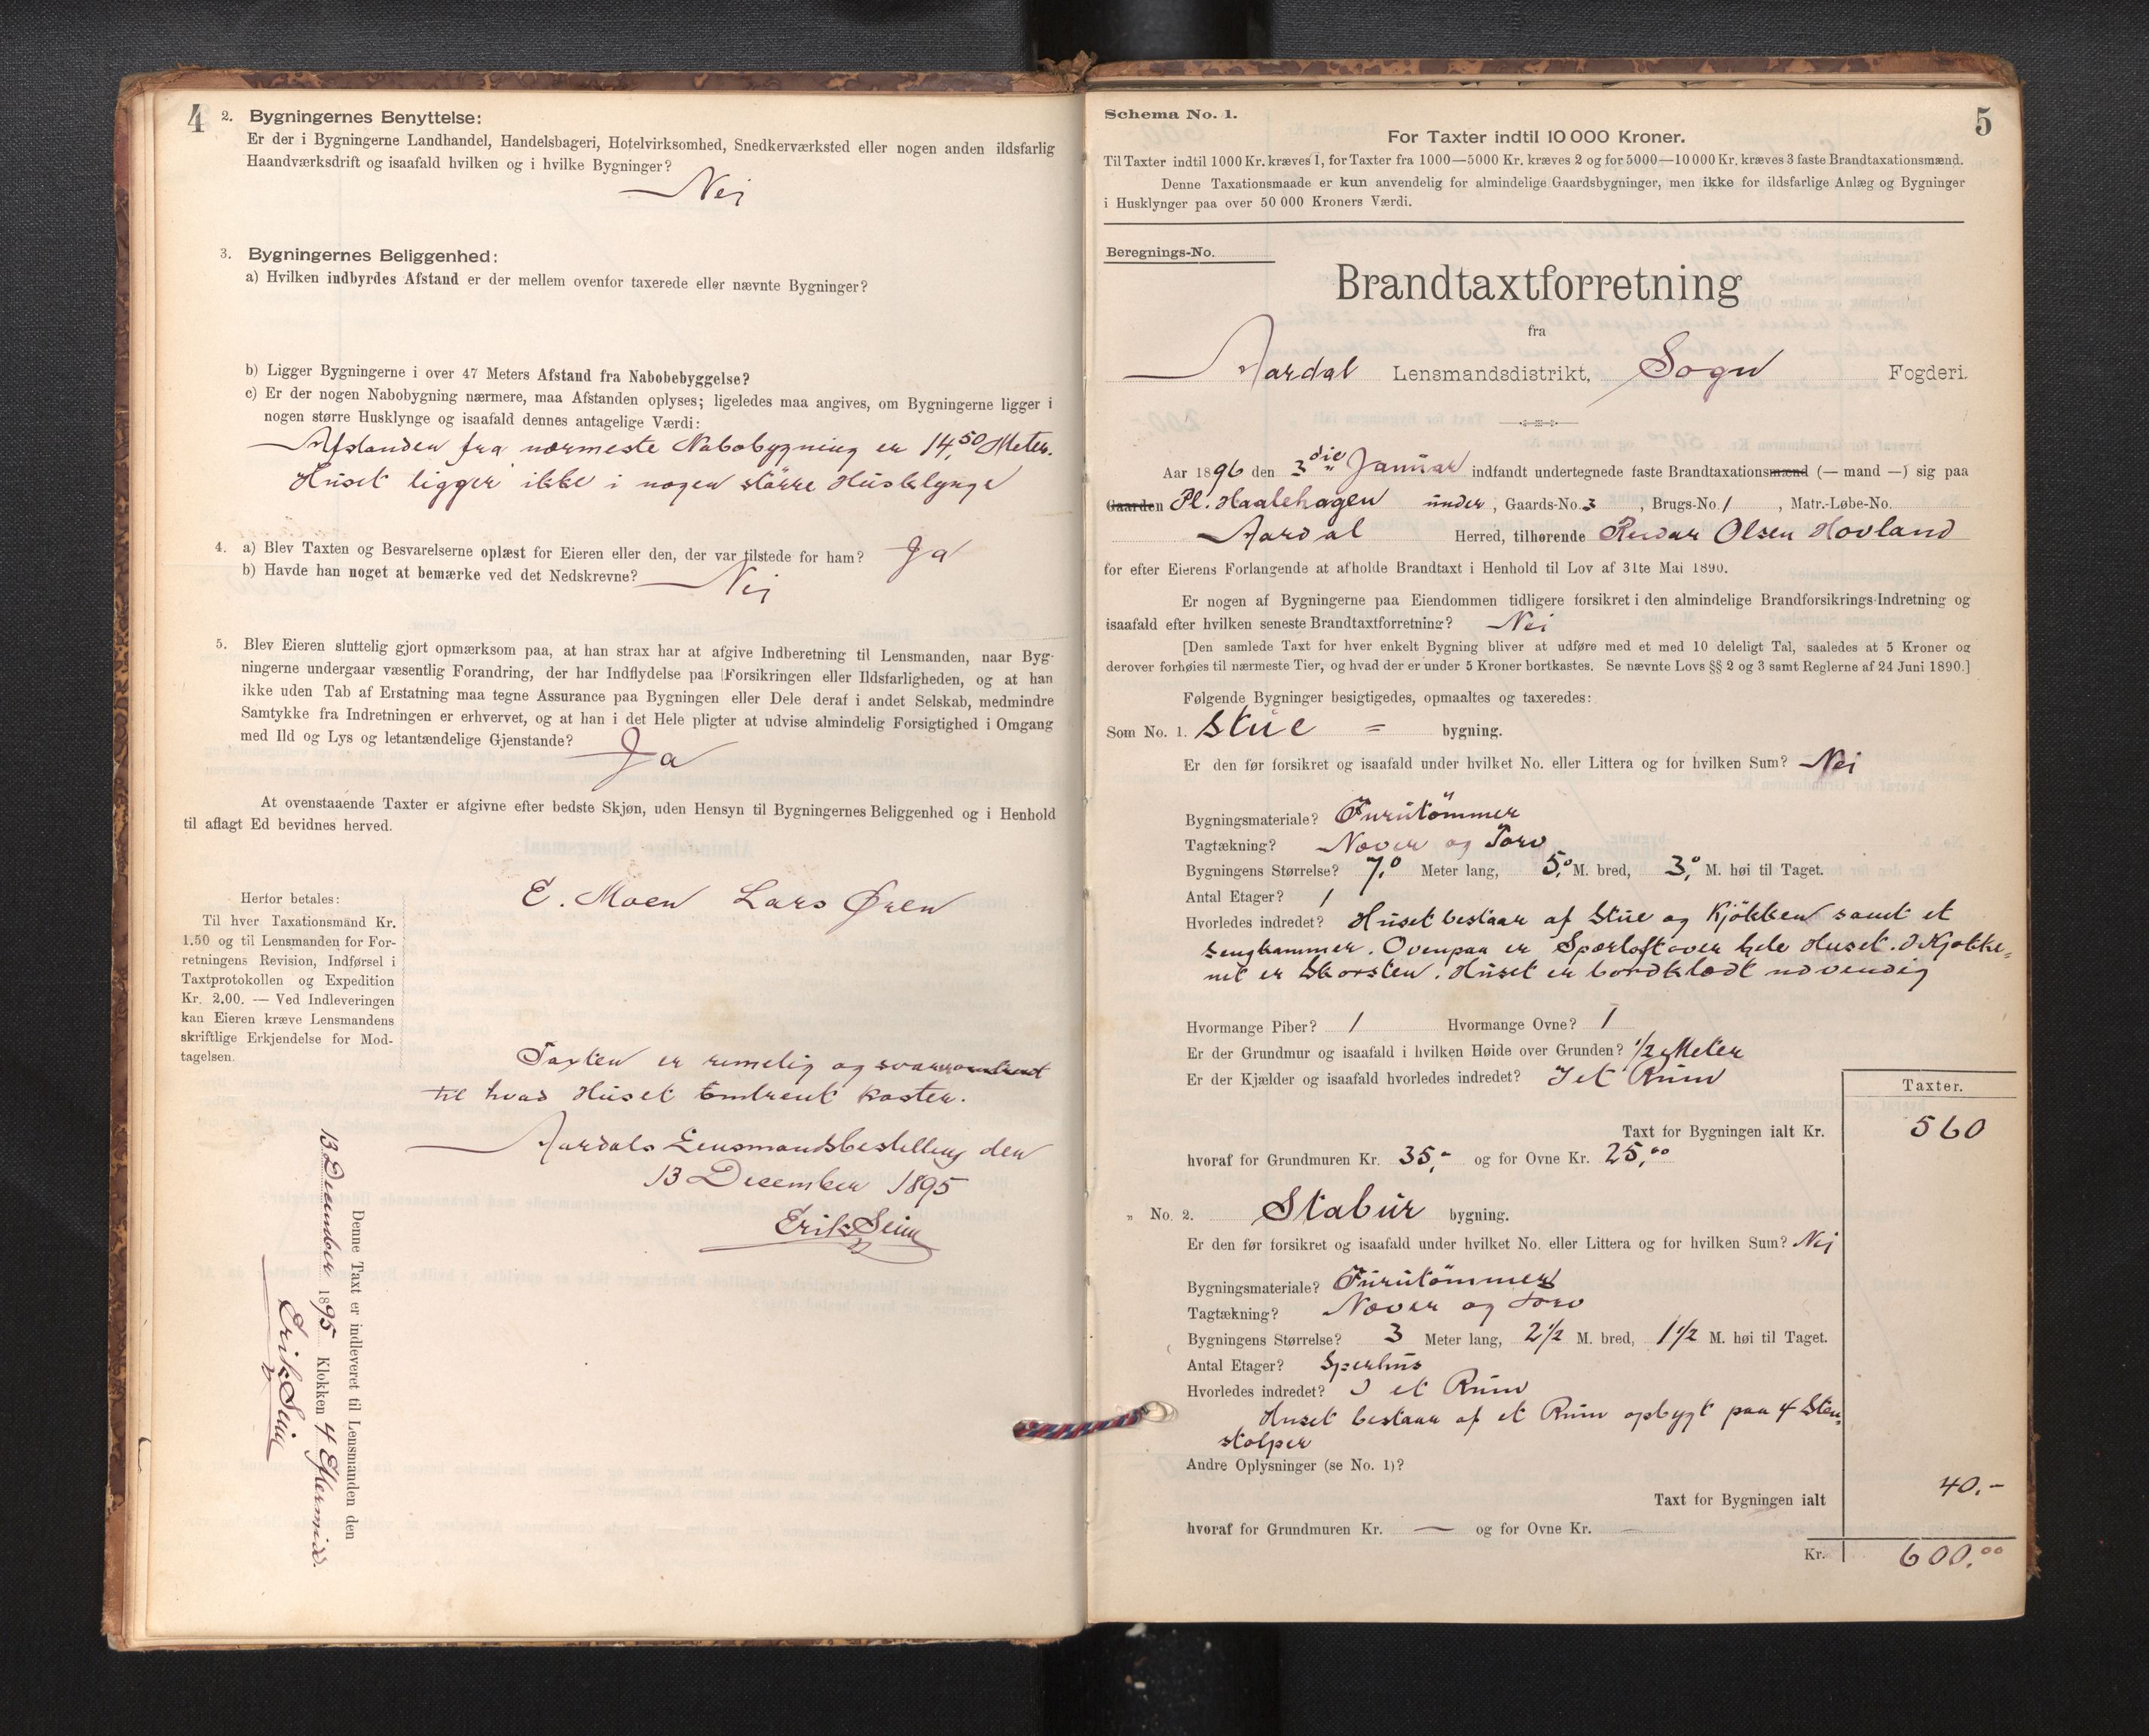 4
2. Bygningernes Benyttelse:
Er der i Bygningerne Landhandel, Handelsbageri, Hotelvirksomhed, Snedkerværksted eller nogen anden ildsfarlig
Haandværksdrift og isaafald hvilken og i hvilke Bygninger?
Nei
3. Bygningernes Beliggenhed:
a) Hvilken indbyrdes Afstand er der mellem ovenfor taxerede eller nævnte Bygninger?
b) Ligger Bygningerne i over 47 Meters Afstand fra Nabobebyggelse?
c) Er der nogen Nabobygning nærmere, maa Afstanden oplyses; ligeledes maa angives, om Bygningerne ligger i
nogen større Husklynge og isaafald dennes antagelige Værdi:
Afstanden fra nærmeste Nabobygning er 14,50 Meter.
Huset ligger ikke i nogen større Husklynge
4. a) Blev Taxten og Besvarelserne oplæst for Eieren eller den, der var tilstede for ham? Ja
b) Havde han noget at bemærke ved det Nedskrevne? Nei
5. Blev Eieren sluttelig gjort opmærksom paa, at han strax har at afgive Indberetning til Lensmanden, naar Byg-
ningerne undergaar væsentlig Forandring, der har Indflydelse paa Forsikringen eller Ildsfarligheden, og at han
ikke uden Tab af Erstatning maa tegne Assurance paa Bygningen eller Dele deraf i andet Selskab, medmindre
Samtykke fra Indretningen er erhvervet, og at han i det Hele pligter at udvise almindelig Forsigtighed i Omgang
med Ild og Lys og letantændelige Gjenstande? Ja
At ovenstaaende Taxter er afgivne efter bedste Skjøn, uden Hensyn til Bygningernes Beliggenhed og i Henhold
til aflagt Ed bevidnes herved.
E. Moen Lars Øren
Herfor betales:
Til hver Taxationsmand Kr.
1.50 og til Lensmanden for For-
retningens Revision, Indførsel i
Taxtprotokollen og Expedition
Kr. 2.00. — Ved Indleveringen
kan Eieren kræve Lensmandens
skriftlige Erkjendelse for Mod-
tagelsen.
Taxten er rimelig og svarer omtrent
til hvad Huset omtrent koster.
Aardals Lensmandsbestilling den
13 December 1895
Erik Seim
Denne Taxt er indleveret til Lensmanden den
13 December 1895 Klokken 4 Eftermidd.
Erik Seim
5
Schema No. 1.
For Taxter indtil 10 000 Kroner.
Til Taxter indtil 1000 Kr. kræves 1, for Taxter fra 1000—5000 Kr. kræves 2 og for 5000—10 000 Kr. kræves 3 faste Brandtaxationsmænd.
Denne Taxationsmaade er kun anvendelig for almindelige Gaardsbygninger, men ikke for ildsfarlige Anlæg og Bygninger
i Husklynger paa over 50 000 Kroners Værdi.
Beregnings-No.
Brandtaxtforretning
fra
Aardal Lensmandsdistrikt, Sogn Fogderi.
Aar 1896 den 3die Januar indfandt undertegnede faste Brandtaxationsmænd (— mand —) sig paa
Gaarden Pl. Haalehagen under, Gaards-No. 3, Brugs-No. 1, Matr.-Løbe-No.
Aardal Herred, tilhørende Reidar Olsen Hovland
for efter Eierens Forlangende at afholde Brandtaxt i Henhold til Lov af 31te Mai 1890.
Er nogen af Bygningerne paa Eiendommen tidligere forsikret i den almindelige Brandforsikrings-Indretning og
isaafald efter hvilken seneste Brandtaxtforretning? Nei
[Den samlede Taxt for hver enkelt Bygning bliver at udføre med et med 10 deleligt Tal, saaledes at 5 Kroner og
derover forhøies til nærmeste Tier, og hvad der er under 5 Kroner bortkastes. Se nævnte Lovs §§ 2 og 3 samt Reglerne af 24 Juni 1890.]
Følgende Bygninger besigtigedes, opmaaltes og taxeredes:
Som No. 1. Stue = bygning.
Er den før forsikret og isaafald under hvilket No. eller Littera og for hvilken Sum? Nei
Bygningsmateriale? Furutømmer
Tagtækning? Næver og Torv
Bygningens Størrelse? 7,0 Meter lang, 5,0 M. bred, 3,0 M. høi til Taget.
Antal Etager? 1
Hvorledes indredet? Huset bestaar af Stue og Kjøkken samt et
Sengkammer. Ovenpaa er Sperloft over hele Huset. I Kjøkke-
net er Skorsten. Huset er bordklædt udvendig
Hvormange Piber? 1 Hvormange Ovne? 1
Er der Grundmur og isaafald i hvilken Høide over Grunden? 1/2 Meter
Er der Kjælder og isaafald hvorledes indredet? I et Rum
Taxter.
Taxt for Bygningen ialt Kr. 560
hvoraf for Grundmuren Kr. 35,- og for Ovne Kr. 25,00
" No. 2. Stabur bygning.
Er den før forsikret og isaafald under hvilket No. eller Littera og for hvilken Sum? Nei
Bygningsmateriale? Furutømmer
Tagtækning? Næver og Torv
Bygningens Størrelse? 3 Meter lang, 2 1/2 M. bred, 1 1/2 M. høi til Taget.
Antal Etager? Sperhus
Hvorledes indredet? I et Rum
Huset bestaar af et Rum opbygt paa 4 Sten-
stolper
Andre Oplysninger (se No. 1)?
Taxt for Bygningen ialt 40.-
hvoraf for Grundmuren Kr. — og for Ovne Kr. —
Kr. 600,00